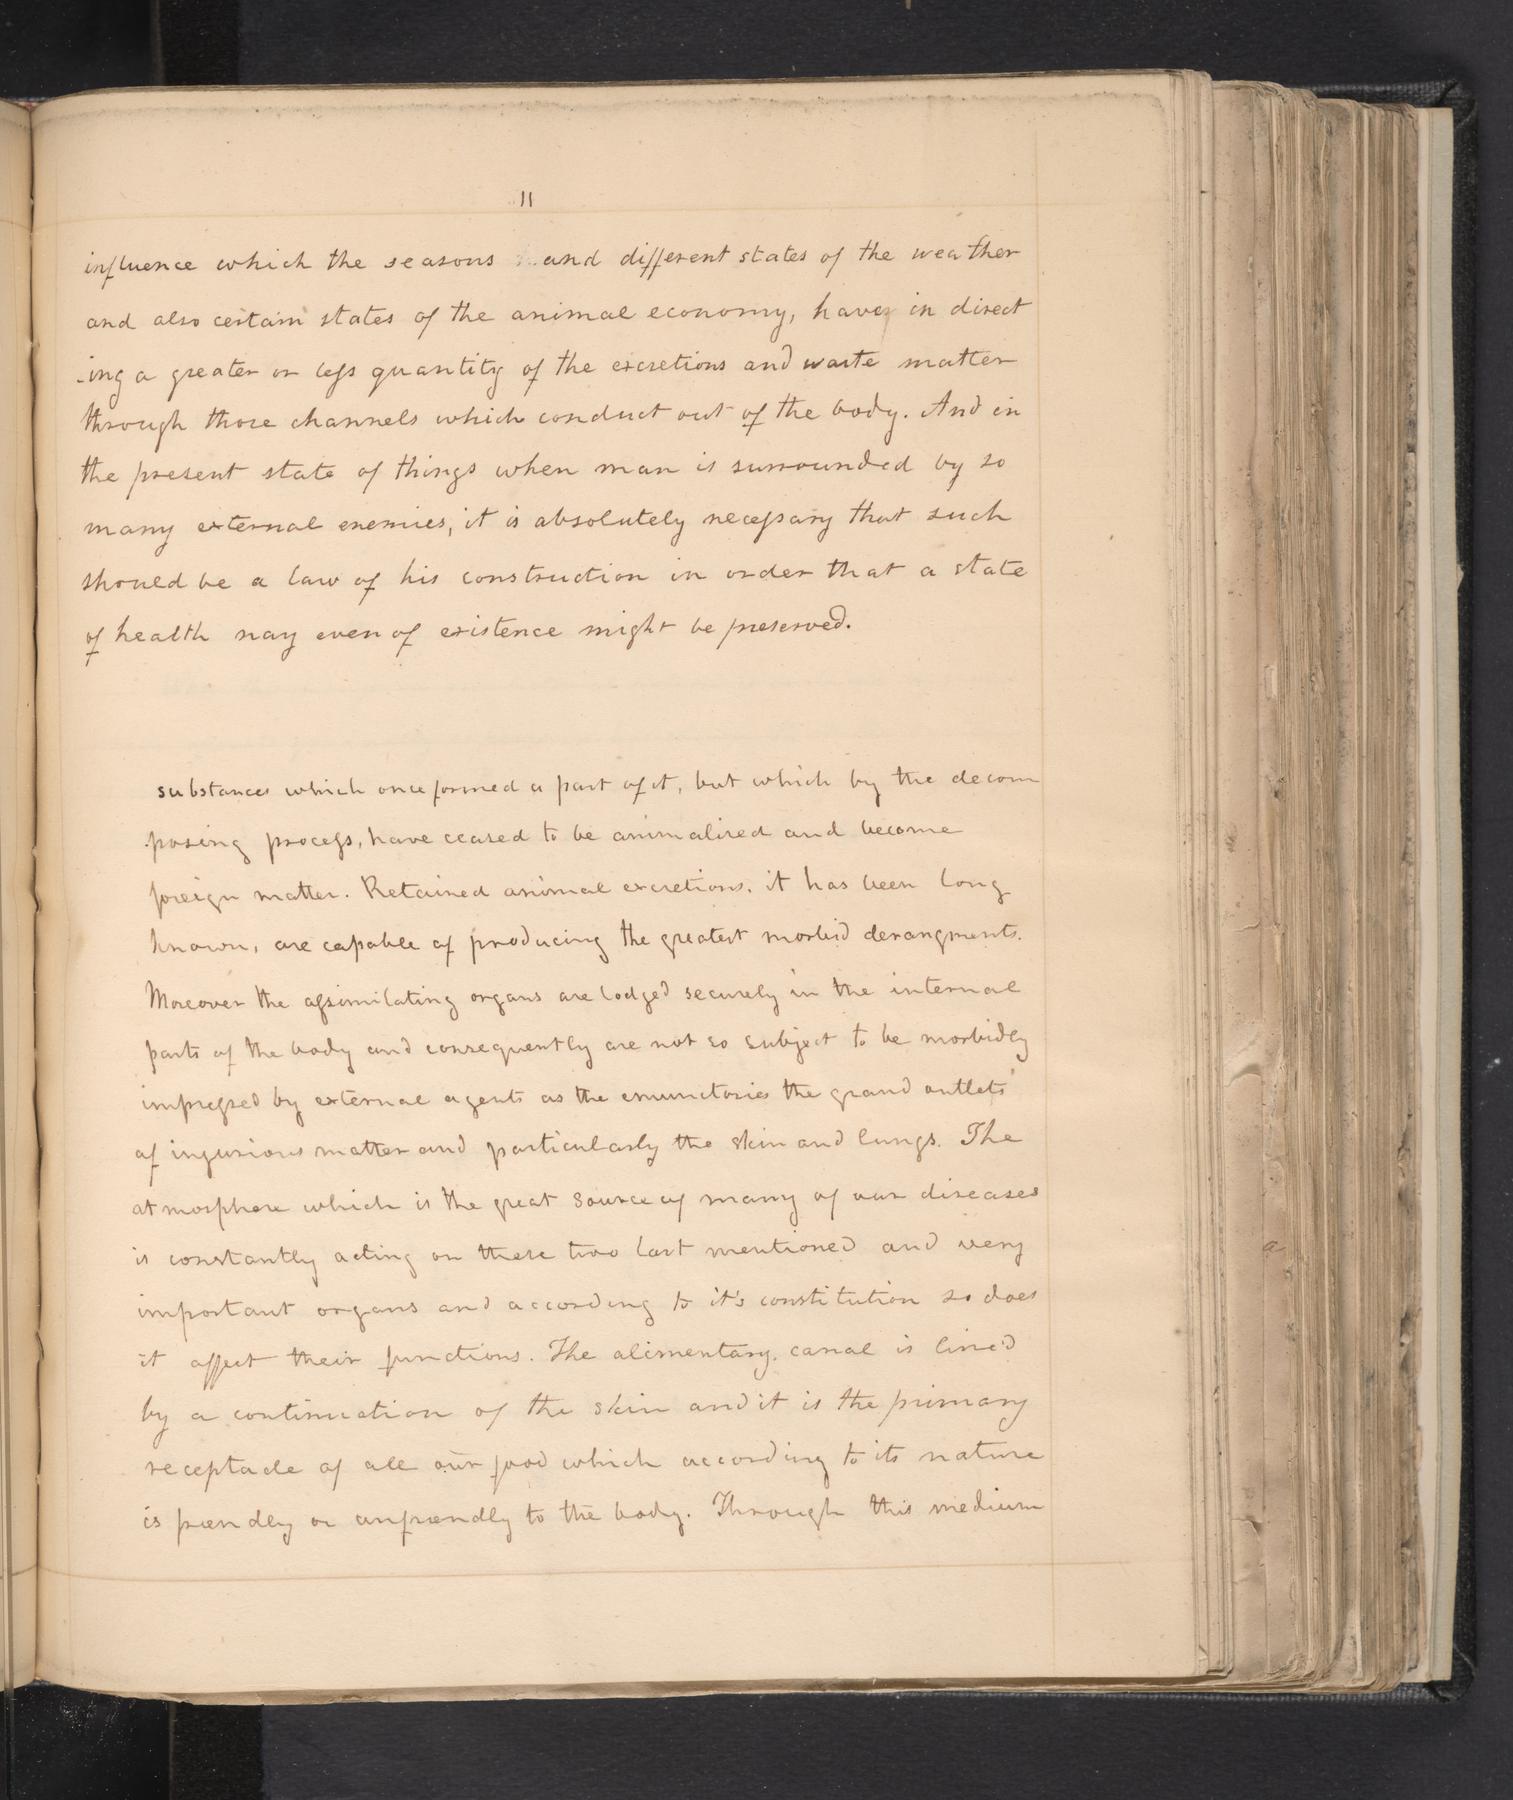 11
influence which the seasons and different states of the weather
and also certain states of the animal economy, have in direct
-ing a greater or less quantity of the excretions and waste matter
through those channels which conduct out of the body. And in
the present state of things when man is surrounded by so
many external enemies, it is absolutely necessary that such
should be a law of his construction in order that a state
of health nay even of existence might be preserved.
substances which once formed a part of it, but which by the decom
posing process, have ceased to be animalised and become
foreign matter. Retained animal excretions. it has been long
known, are capable of producing the greatest morbid derangments.
Moreover the assimilating organs are lodged securely in the internal
parts of the body and consequently are not so subject to be morbidly
impressed by external agents as the emunctories the grand outlets
of ingurious matter and particularly the skin and lungs. The
atmosphere which is the great source of many of our diseases
is constantly acting on these two last mentioned and very
important organs and according to it's constitution so does
it affect their functions. The alimentary canal is line'd
by a continuation of the skin and it is the primary
receptacle of all our food which according to its nature
is friendly or unfriendly to the body. Through this medium
a